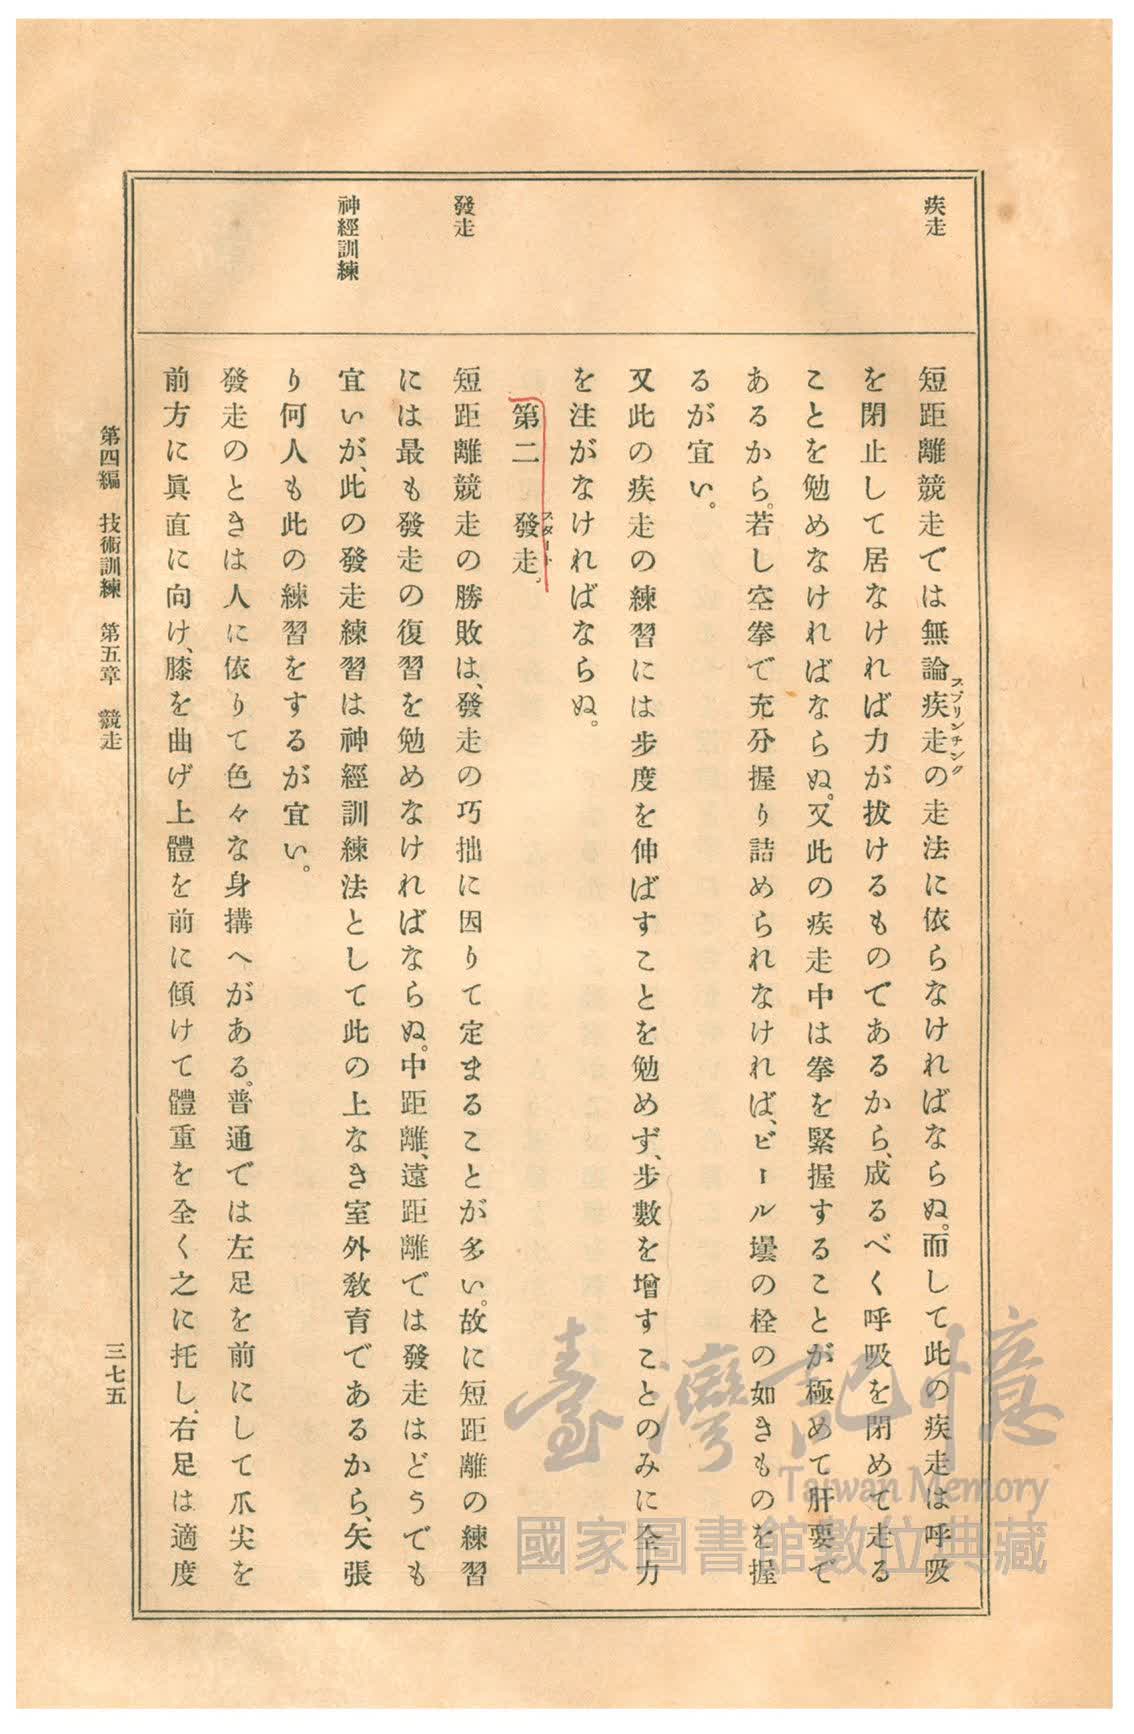 疾走
發走
神經訓練
短距離競走では無論疾走の走法に依らなければならぬ。而して此の疾走は呼吸
スプリンチング
を閉止して居なければ力が拔けるものであるから、成るべく呼吸を閉めて走る
ことを勉めなければならぬ。又此の疾走中は拳を緊握することが極めて肝要で
あるから。若し空拳で充分握り詰められなければ、ビール壜の栓の如きものを握
るが宜い。
又此の疾走の練習には步度を伸ばすことを勉めず、步數を增すことのみに全力
を注がなければならぬ。
第二 發走。
スタート
短距離競走の勝敗は、發走の巧拙に因りて定まることが多い。故に短距離の練習
には最も發走の復習を勉めなければならぬ。中距離、遠距離では發走はどうでも
宜いが、此の發走練習は神經訓練法として此の上なき室外敎育であるから、矢張
り何人も此の練習をするが宜い。
發走のときは人に依りて色々な身搆へがある。普通では左足を前にして爪尖を
前方に眞直に向け、膝を曲げ上體を前に傾けて體重を全く之に托し、右足は適度
第四編 技術訓練 第五章 競走
三七五
臺灣記憶
Taiwan Memory
國家圖書館數位典藏